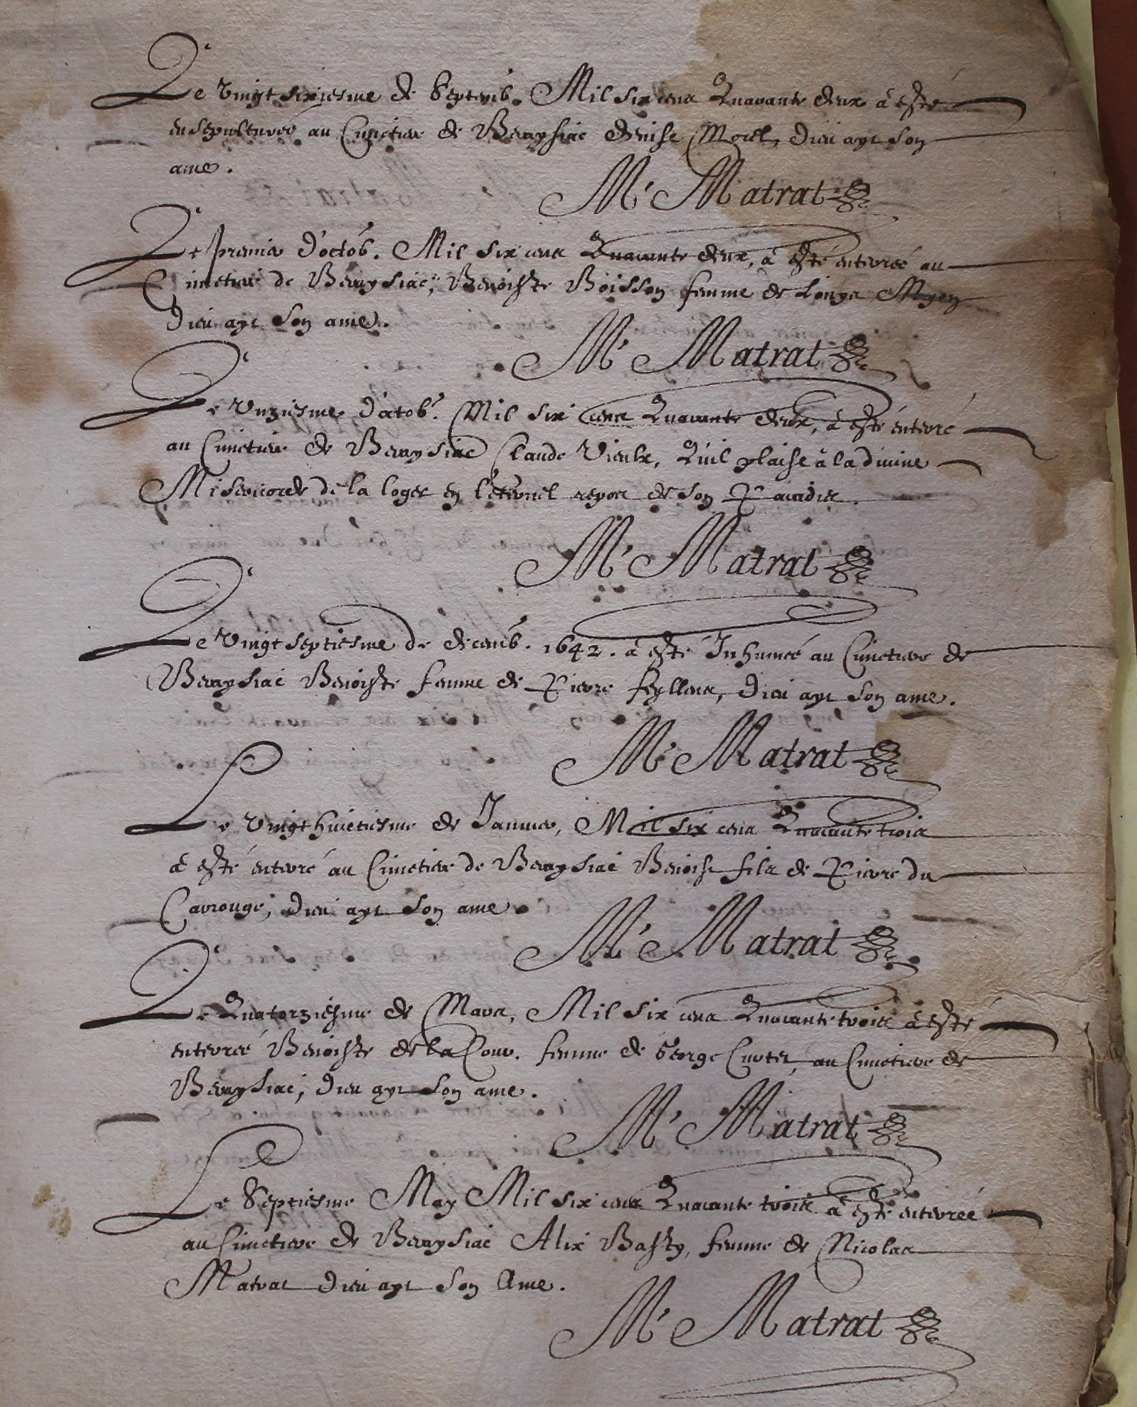 Le vingt sixiesme de Septemb. Mil six cens Quarante deux a esté
ensepulturee au Cimetiere de Veraysiac Denise Morel, dieu aye son
ame.
M Matrat
Le premier d'octob. Mil six cens Quarante deux, a esté enterrée au
Cimetiere de Veraysiac, Benoiste Boisson femme de Louys
Dieu aye son ame.
M Matrat
Le Unziesme d'octob. Mil six cens Quarante deux, a esté enterré
au Cimetiere de Veraysiac Claude Vieulx, Quil plaise a la divine
Misericorde de la loger en l'eternel repos de son Paradis.
M Matrat
Le vingt septiesme de decemb. 1642. a esté Inhumée au Cimetiere de
Veraysiac Benoiste femme de Pierre, dieu aye son ame.
M Matrat
Le vingt huictiesme de Janvier, Mil six cens Quarante trois
a esté enterré au Cimetiere de Veraysiac Benoist fils de Pierre du
Carrouge, dieu aye son ame.
M Matrat
Le Quatorziesme de Mars, Mil six cens Quarante trois a esté
enterrée Benoiste de la Cour. femme de George, au Cimetiere de
Veraysiac, dieu aye son ame.
M Matrat
Le Septiesme May Mil six cens Quarante trois a esté enterrée
au Cimetiere de Veraysiac Alix Basty, femme de Nicolas
Matrat dieu aye son Ame.
M Matrat